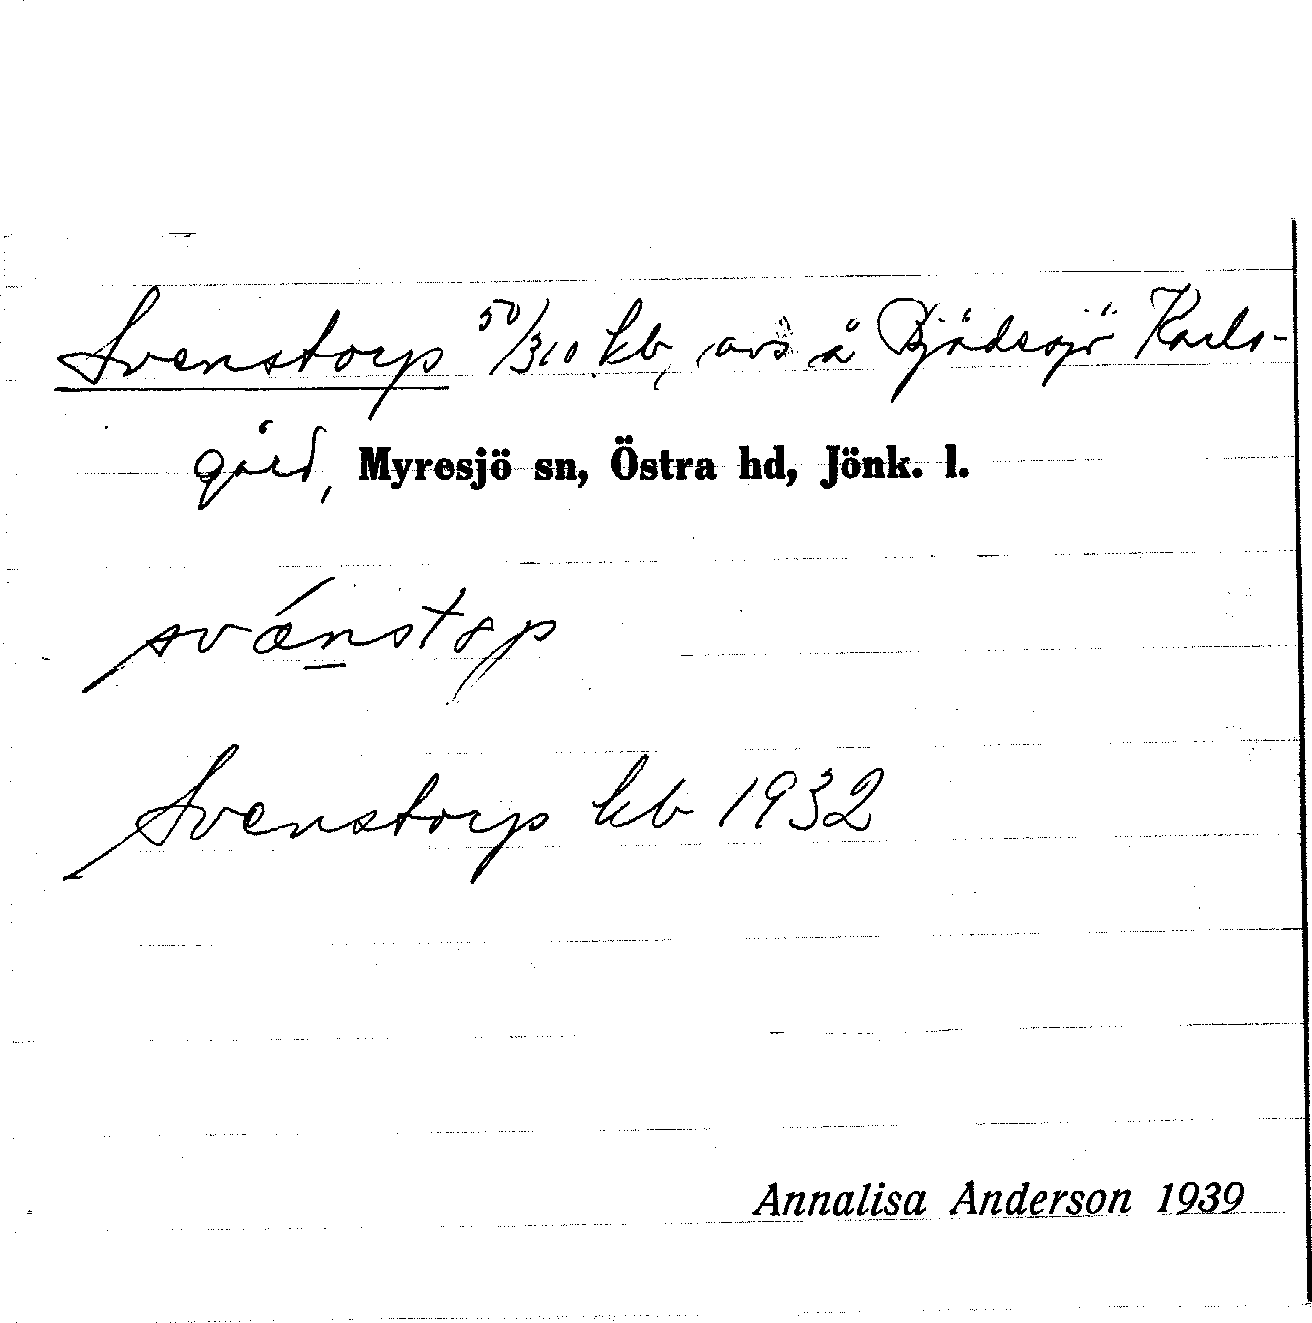 Svenstorp 50/310 kb, avs å Bjädsjö Karls-
gård, Myresjö sn, Östra hd, Jönk. l.
svǽnstap
Svenstorp kb 1932
Annalisa Anderson 1939